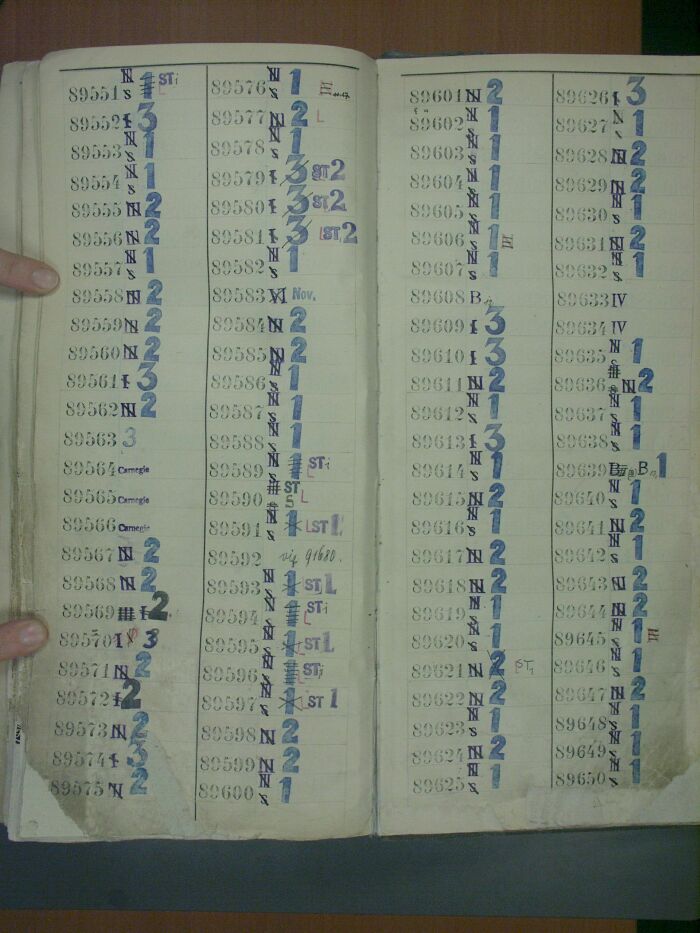 89551 N s 1 STi L
89552 I 3
89553 N s 1
89554 N s 1
89555 N 2
89556 N 2
89557 N s 1
89558 N 2
89559 N 2
89560 N 2
89561 I 3
89562 N 2
89563 3
89564 Carnegie
89565 Carnegie
89566 Carnegie
89567 N 2
89568 N 2
89569 I 2
89570 I 3
89571 N 2
89572 I 2
89573 N 2
89574 I 3
89575 N 2
89576 N s 1 III
89577 N 2 L
89578 N s 1
89579 I 3 ST 2
89580 I 3 ST 2
89581 I 3 LST 2
89582 N s 1
89583 VI Nov.
89584 N 2
89585 N 2
89586 N s 1
89587 N s 1
89588 N s 1
89589 N s 1 STi L
89590 ST 5 L
89591 N s 1 LST 1
89592 vis 91680.
89593 N s 1 ST 1
89594 N s STi L
89595 N s 1 ST 1
89596 N s STi L
89597 N s 1 ST 1
89598 N 2
89599 N 2
89600 N s 1
89601 N 2
89602 N s 1
89603 N s 1
89604 N s 1
89605 N s 1
89606 N s 1 III
89607 N s 1
89608 B
89609 I 3
89610 I 3
89611 N 2
89612 N s 1
89613 I 3
89614 N s 1
89615 N 2
89616 N s 1
89617 N 2
89618 N 2
89619 N s 1
89620 N s 1
89621 N 2 ST1
89622 N 2
89623 N s 1
89624 N 2
89625 N s 1
89626 I 3
89627 N s 1
89628 N 2
89629 N 2
89630 N s 1
89631 N 2
89632 N s 1
89633 IV
89634 IV
89635 N s 1
89636 N 2
89637 N s 1
89638 N s 1
89639 B B 1
89640 N s 1
89641 N 2
89642 N s 1
89643 N 2
89644 N 2
89645 N s 1 III
89646 N s 1
89647 N 2
89648 N s 1
89649 N s 1
89650 N s 1